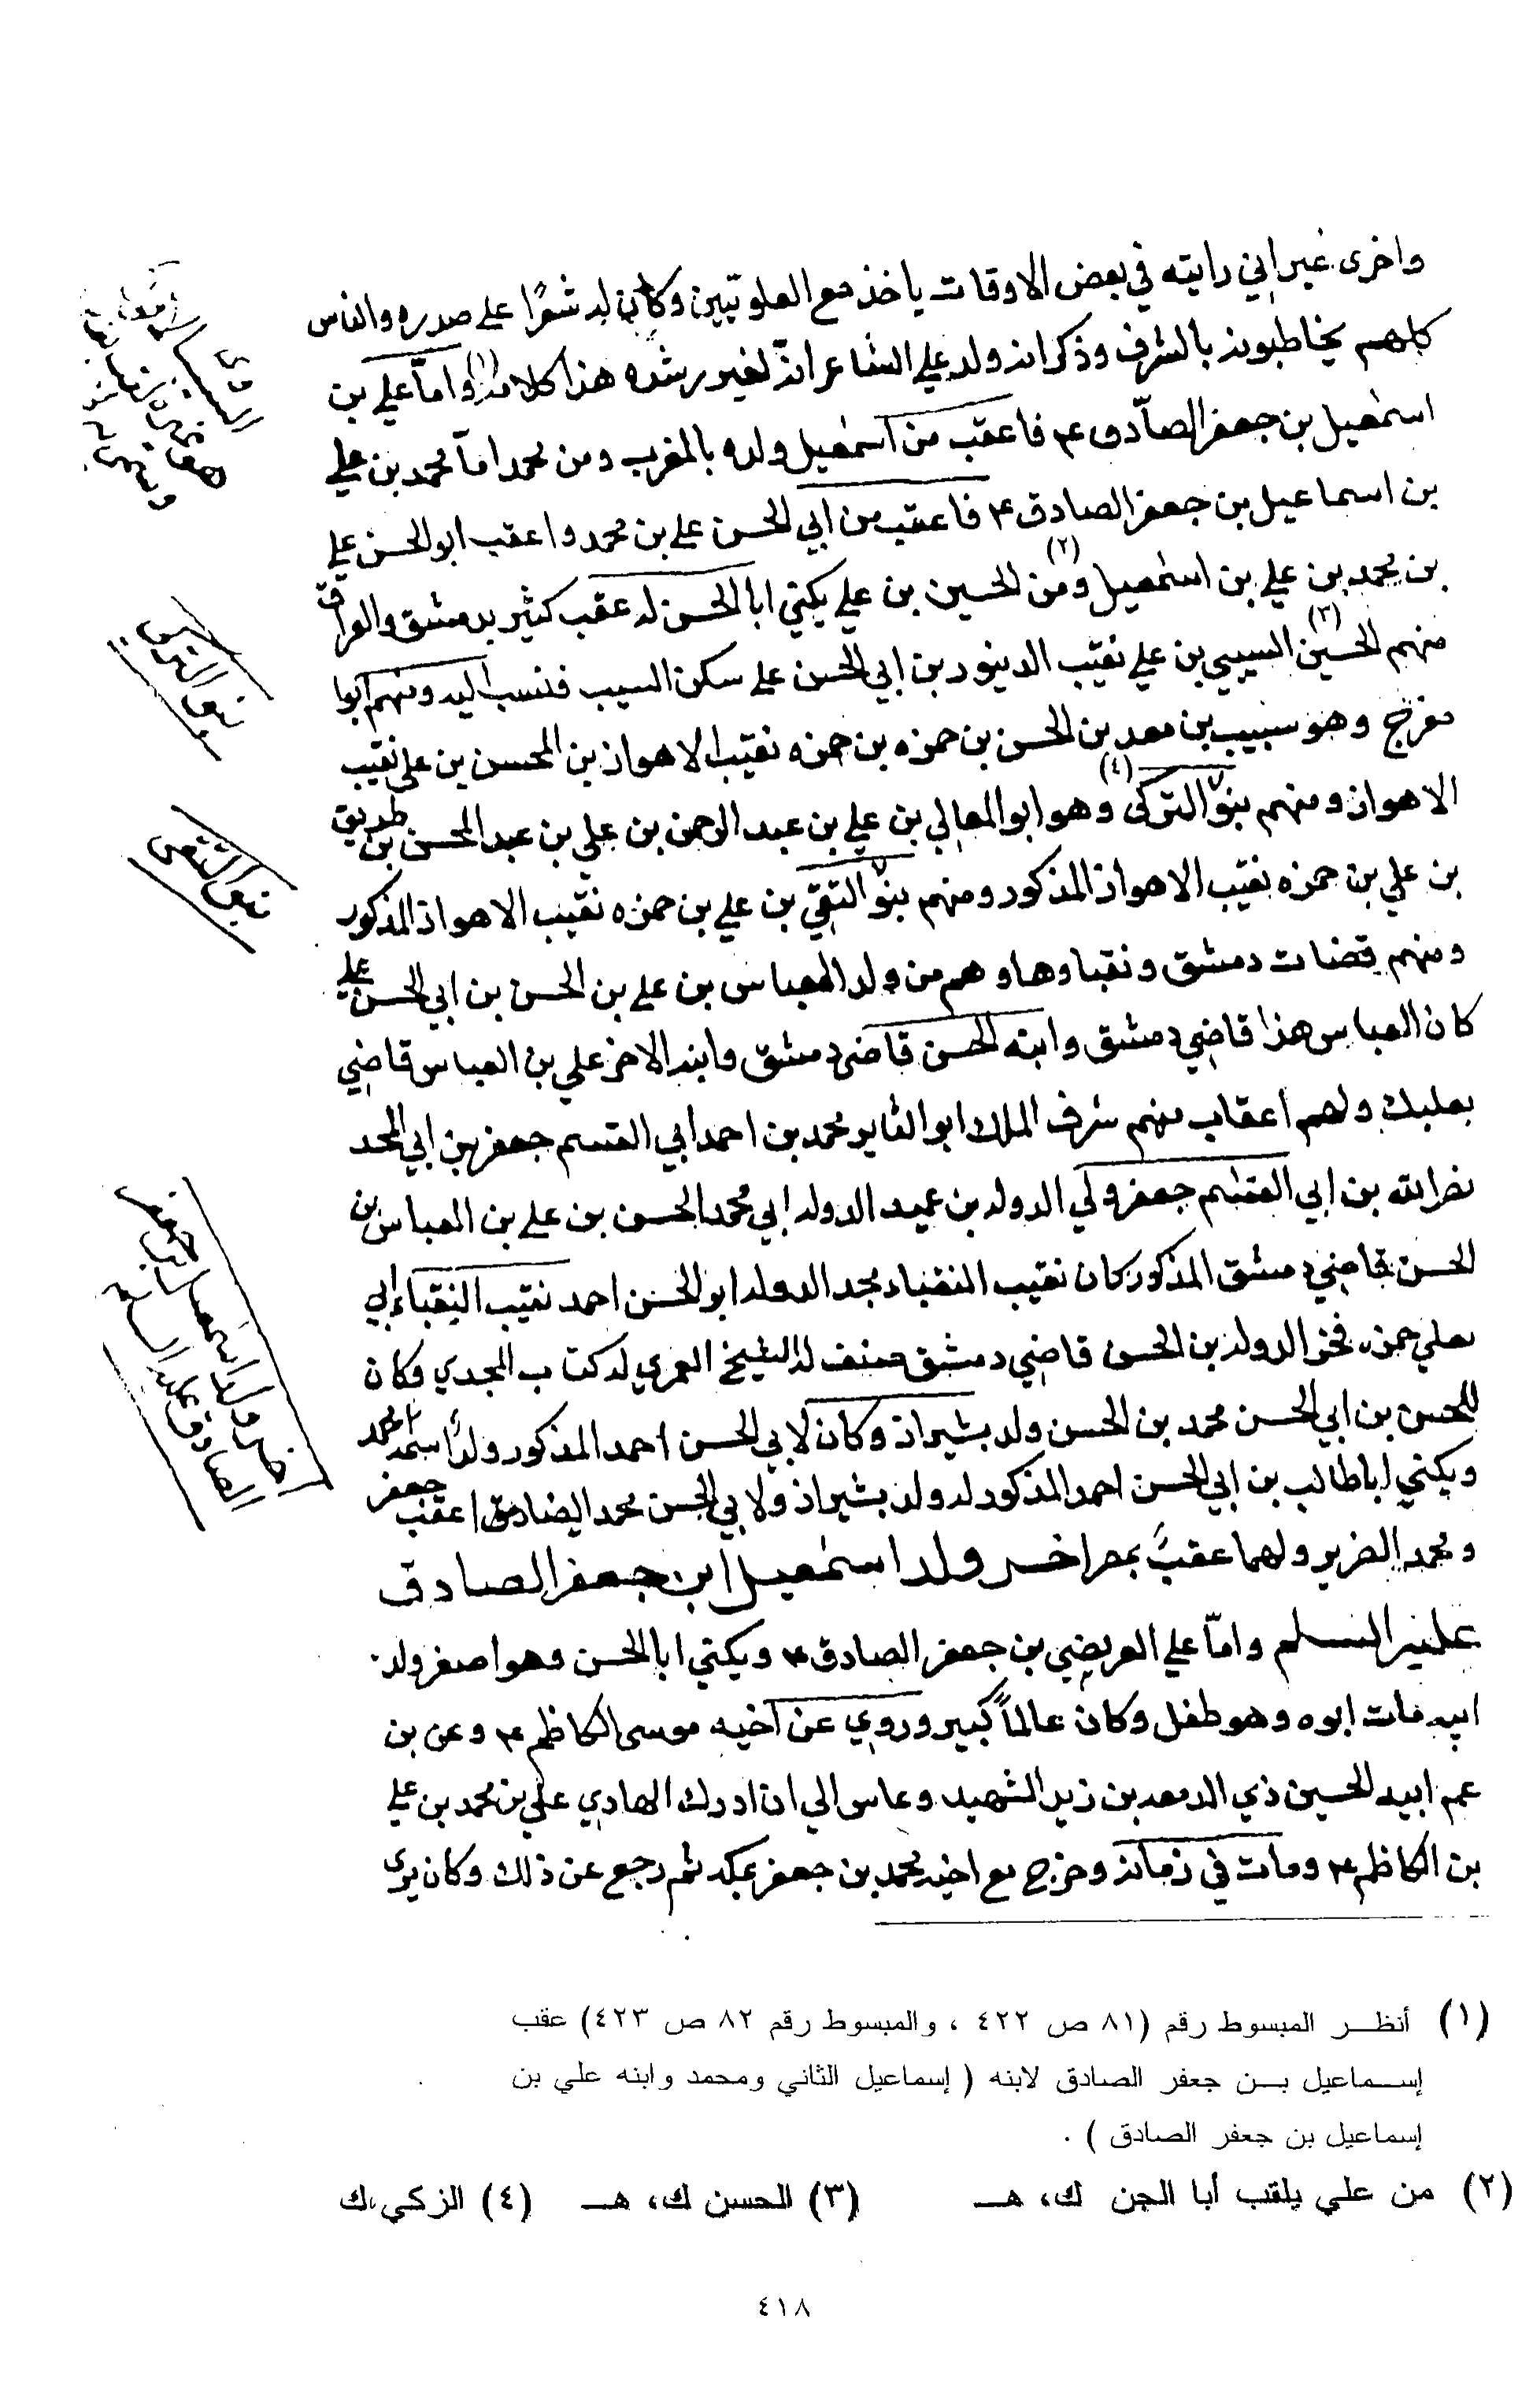 واخرى غير اني رايته في بعض الاوقات ياخذ مع العلويين وكان له شعرًا على صدره والناس
كلهم يخاطبونه بالشرف وذكر انه ولد علي الشاعر انه لغير رشده هذا كلامه (١) واما علي بن
اسمعيل بن جعفر الصادق ع فاعقب من اسمعيل ولده بالمغرب ومن محمد اما محمد بن علي
بن اسماعيل بن جعفر الصادق ع فاعقب من ابي الحسن علي بن محمد واعقب ابو الحسن علي
بن محمد بن علي بن اسمعيل (٢) ومن الحسين بن علي يكني ابا الحسن له عقب كثير بدمشق والعراق
منهم الحسين (٣) السيبي بن علي نقيب الدينور بن ابي الحسن علي سكن السيب فنسب اليه ومنهم ابوا
مفرج وهو سبيب بن معد بن الحسن بن حمزه بن حمزه نقيب الاهواز بن المحسن بن علي نقيب
الاهواز ومنهم بنوا التركى (٤) وهو ابو المعالي بن علي بن عبد الرحمن بن علي بن عبد المحسن بن طريق
بن علي بن حمزه نقيب الاهواز المذكور ومنهم بنوا التقي بن علي بن حمزه نقيب الاهواز المذكور
ومنهم قضات دمشق ونقباوها وهم من ولد العباس بن علي بن الحسن بن ابي الحسن علي
كان العباس هذا قاضي دمشق وابنه الحسن قاضي دمشق وابنه الاخر علي بن العباس قاضي
بعلبك ولهم اعقاب منهم شرف الملك ابو محمد بن احمد ابي القسم جعفر بن ابي المجد
نصر الله بن ابي القسم جعفر ولي الدوله بن عميد الدوله ابي محمد الحسن بن علي بن العباس بن
الحسن قاضي دمشق المذكور كان نقيب النقباء مجد الدوله ابو الحسن احمد نقيب النقباء ابي
يعلي حمزه فخر الدوله بن الحسن قاضي دمشق صنف له الشيخ العمري له كتاب المجدي وكان
للحسن بن ابي الحسن محمد بن الحسن ولد بشيراز وكان لابي الحسن احمد المذكور ولدًا اسمه محمد
ويكني ابا طالب بن ابي الحسن احمد المذكور له ولد بشيراز ولابي الحسن محمد الصادق اعقب جعفر
ومحمد الضرير ولهما عقبٌ بمصر اخر ولد اسمعيل ابن جعفر الصادق
عليه السلم واما علي العريضي بن جعفر الصادق ع ويكني ابا الحسن وهو اصغر ولد
ابيه مات ابوه وهو طفل وكان عالماً كبير وروي عن اخيه موسى الكاظم ع وعن بن
عم ابيه الحسين ذي الدمعه بن زيد الشهيد وعاش الي ان ادرك الهادي علي بن محمد بن علي
بن الكاظم ع ومات في زمانه وخرج مع اخيه محمد بن جعفر بمكه ثم رجع عن ذلك وكان يرى
بنو التركي
بنو التقي
اخر ولد اسمعيل ابن جعفر
الصادق عليه السلم
(١) أنظـــر المبسوط رقم (٨١ ص ٤٢٢ ، والمبسوط رقم ٨٢ ص ٤٢٣) عقب
إســماعيل بــن جعفر الصادق لابنه ( إسماعيل الثاني ومحمد وابنه علي بن
إسماعيل بن جعفر الصادق ) .
(٢) من علي يلقب أبا الجن ك، هــ (٣) الحسن ك، هــ (٤) الزكي،ك
٤١٨